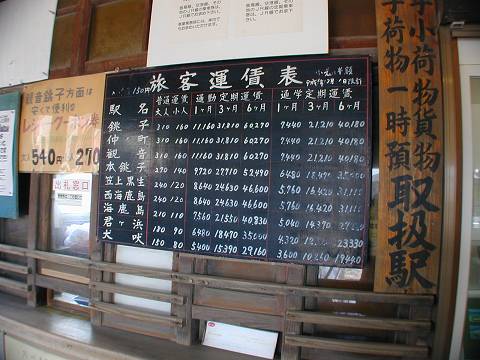 旅客運賃表
駅名 普通運賃 通勤定期運賃 通学定期運賃
大人 小人 1ヶ月 3ヶ月 6ヶ月 1ヶ月 3ヶ月 6ヶ月
銚子 310 160 11,160 31,810 60,270 7,440 21,210 40,180
仲ノ町 310 160 11,160 31,810 60,270 7,440 21,210 40,180
観音 310 160 11,160 31,810 60,270 7,440 21,210 40,180
本銚子 270 140 9,720 27,710 52,490
笠上黒生 240 120 8,640 24,630 46,660 5,760 16,420 31,110
西海鹿島 240 120 8,640 24,630 46,660 5,760 16,420 31,110
海鹿島 210 110 7,560 21,550 40,830 5,040 14,370
君ヶ浜 180 90 6,480 18,470 35,000 4,320 23,330
犬吠 150 80 5,400 15,390 29,160 3,600 10,260 19,440
観音 銚子方面は
安くて便利な
540円
270
出札窓口
手小荷物貨物
手荷物一時預
取扱駅